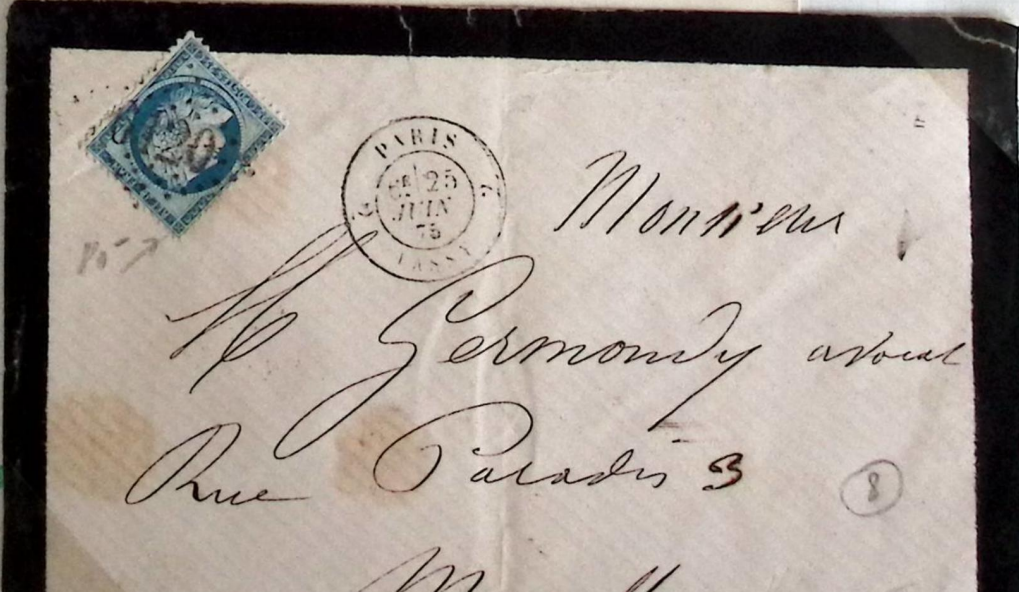 PARIS
2
25
JUIN
75
PASSY
Monsieur
H Germondy avocat
Rue Paradis 3
8